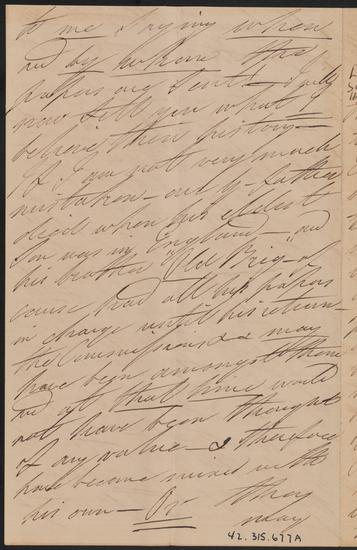 to me saying when
and by whom the
papers are sent — I will
now tell you what I
believe their history —
If I am not very much
mistaken — our Gd father
died when his eldest
Son was in England — and
his brother "Old Brig — of
course had all his papers
in charge until his return —
the Commissions may
have been amongst them
and at that time would
not have been thought
of any value — & therefore
have become mixed with
his own — Or they
may
42.315.677A